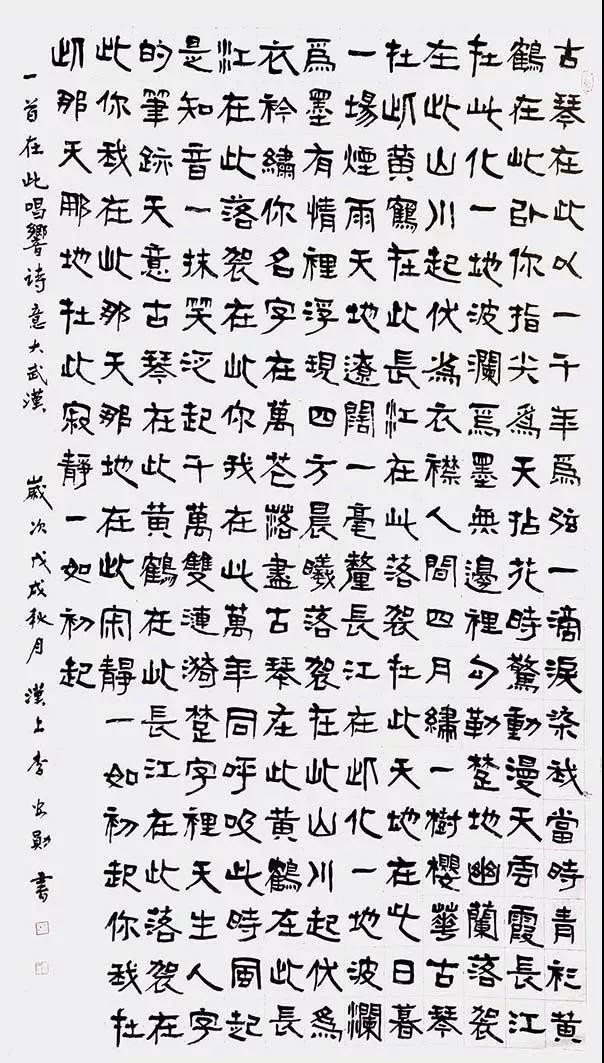 古琴在此以一千年爲弦一滴淚染我當時青衫黃
鶴在此卧你指尖爲天拈花時驚動漫天雲霞長江
在此化一地波瀾爲墨無邊裡勾勒楚地幽蘭落袈
在此山川起伏爲衣襟人間四月繡一樹櫻華古琴
在此黃鶴在此長江在此落袈在此天地在此日暮
一場煙雨天地遼闊一毫釐長江在此化一地波瀾
爲墨有情裡浮現四方晨曦落袈在此山川起伏爲
衣衿繡你名字在萬蒼落盡古琴在此黃鶴在此長
江在此落袈在此你我在此萬年同呼吸此時風起
是知音一抹笑泛起千萬雙漣漪楚字裡天生人字
的筆跡天意古琴在此黃鶴在此長江在此落袈在
此你我在此那天那地在此閑靜一如初起你我在
此那天那地在此寂靜一如初起
一首在此唱響詩意大武漢 歲次戊戌秋月 漢上李勛書